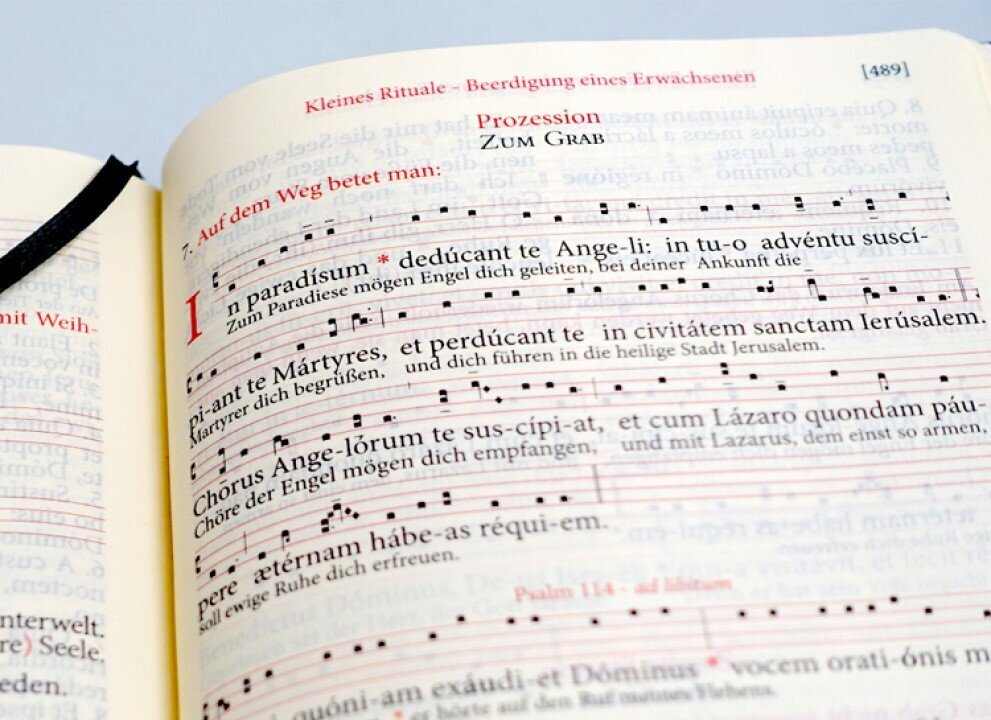 mit Weih-
nterwelt.
re) Seele.
eden.
Kleines Rituale - Beerdigung eines Erwachsenen
[489]
Prozession
ZUM GRAB
7. Auf dem Weg betet man:
In paradísum * dedúcant te Ange-li: in tu-o advéntu suscí-
Zum Paradiese mögen Engel dich geleiten, bei deiner Ankunft die
pi-ant te Mártyres, et perdúcant te in civitátem sanctam Ierúsalem.
Märtyrer dich begrüßen, und dich führen in die heilige Stadt Jerusalem.
Chorus Ange-lórum te sus-cípi-at, et cum Lázaro quondam páu-
Chöre der Engel mögen dich empfangen, und mit Lazarus, dem einst so armen,
pere ætérnam hábe-as réqui-em.
soll ewige Ruhe dich erfreuen.
Psalm 114 - ad libitum
quóni-am exáudi-et Dóminus * vocem orati-ónis m
* er hörte auf den Ruf meines Flehens.